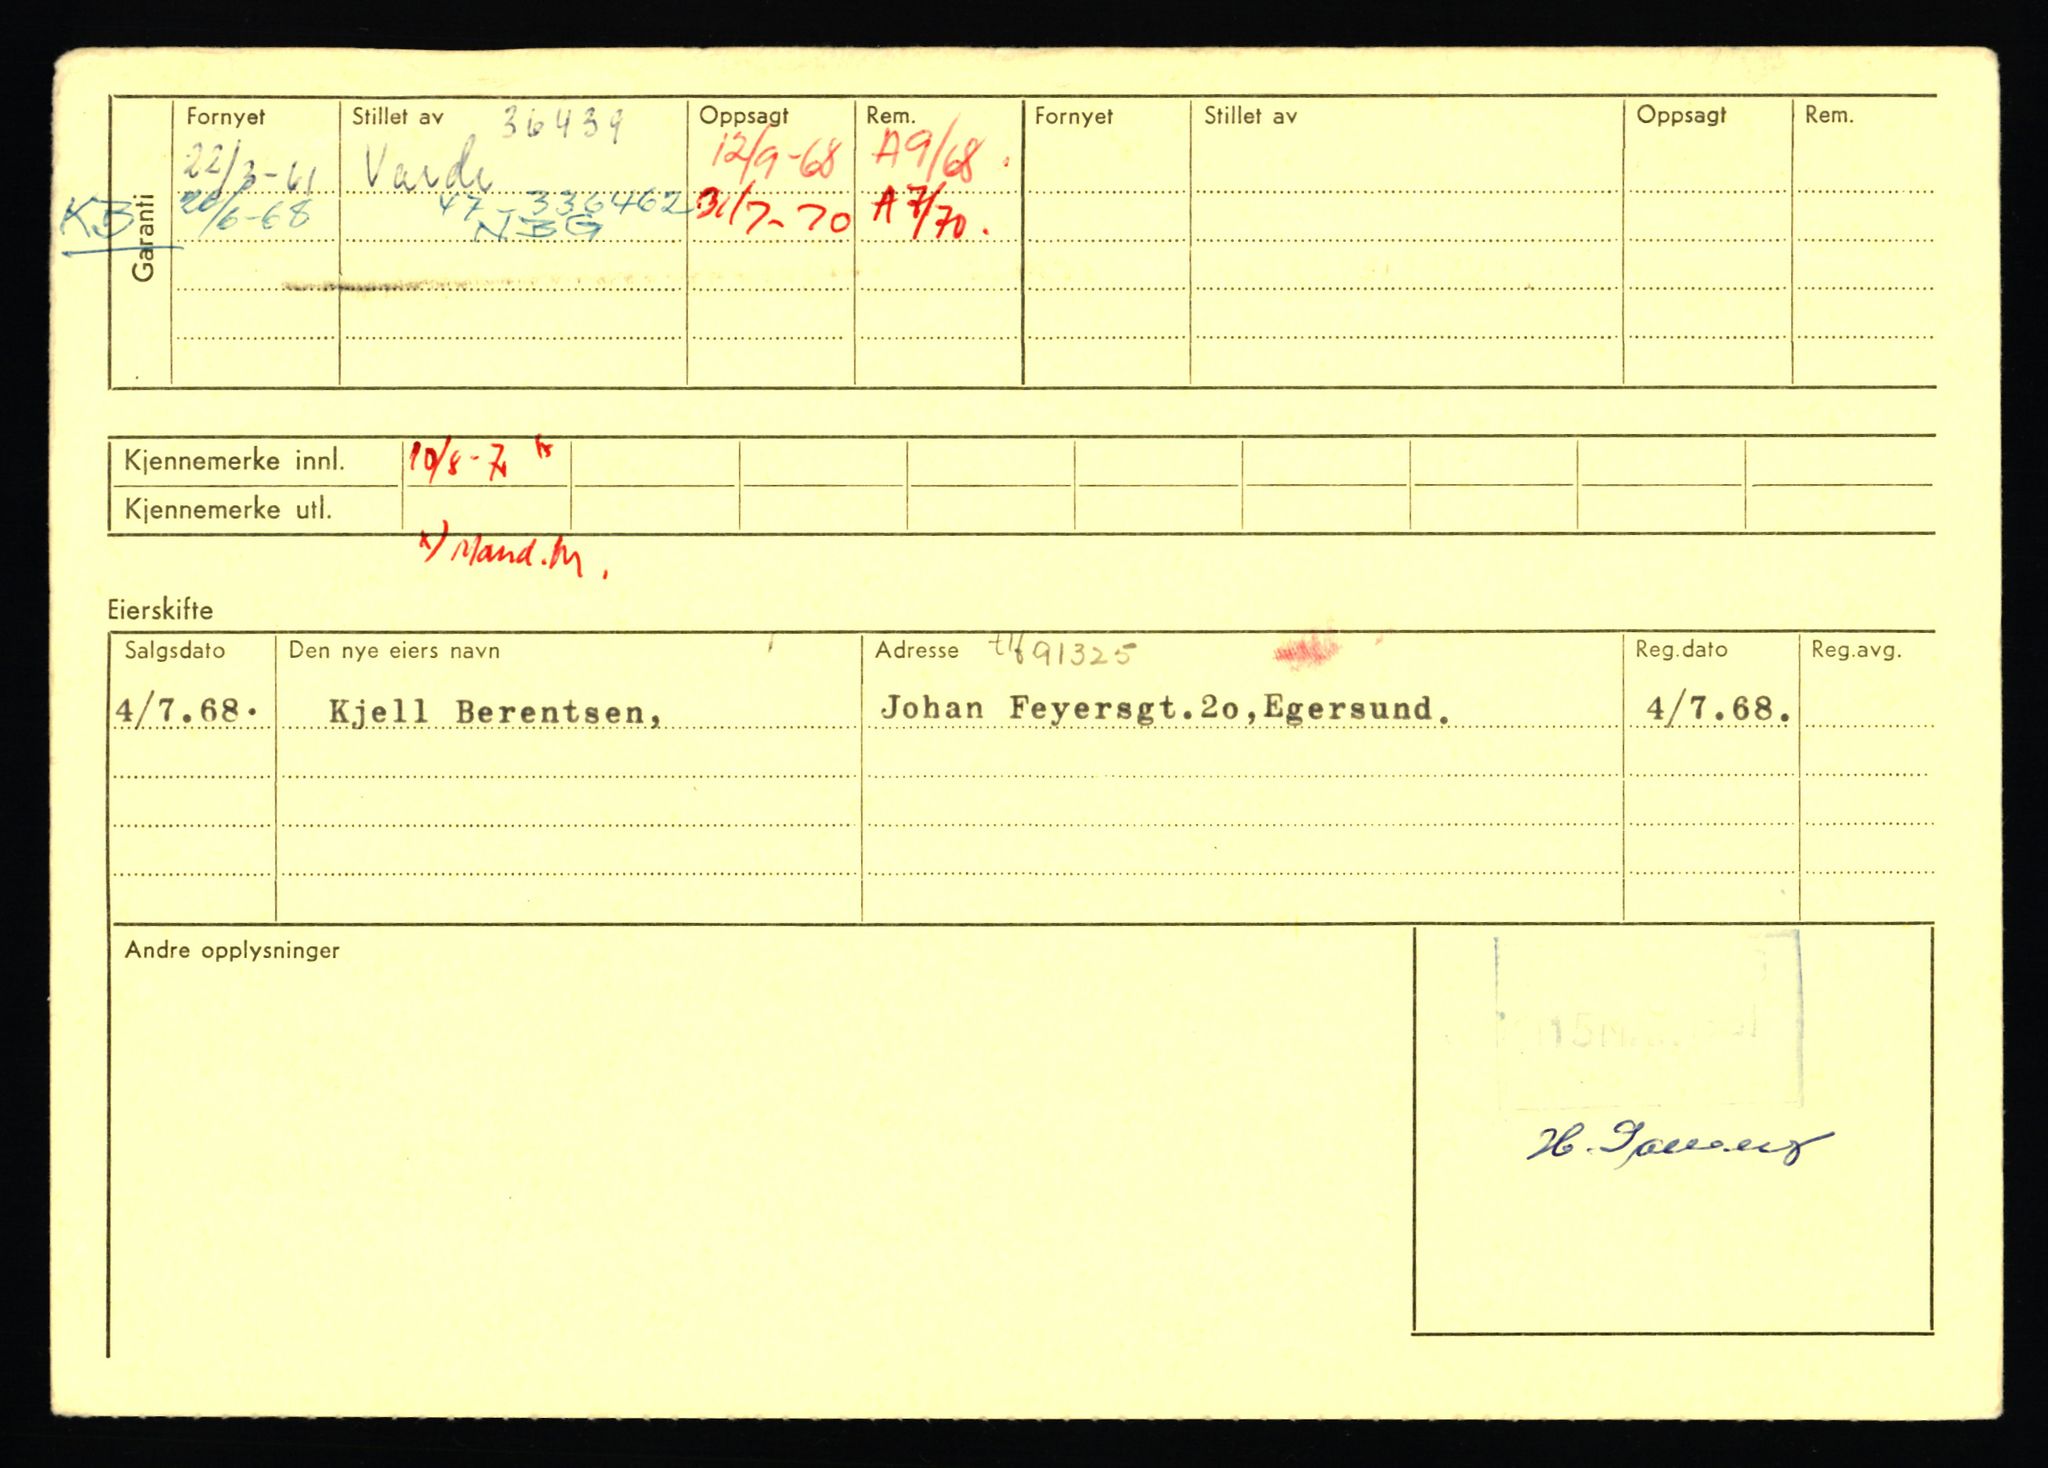 Fornyet Stillet av 36439 Oppsagt Rem. Fornyet Stillet av Oppsagt Rem.
22/3-61 Varde 12/9-68 A 9/68.
KB 20/6-68 47-336462 31/7-70 A 7/70.
NBG
Garanti
Kjennemerke innl. 10/8-70 x
Kjennemerke utl.
x) Mand.
Eierskifte
Salgsdato Den nye eiers navn Adresse tlf 91325 Reg.dato Reg.avg.
4/7.68. Kjell Berentsen, Johan Feyersgt.2o,Egersund. 4/7.68.
Andre opplysninger
H.